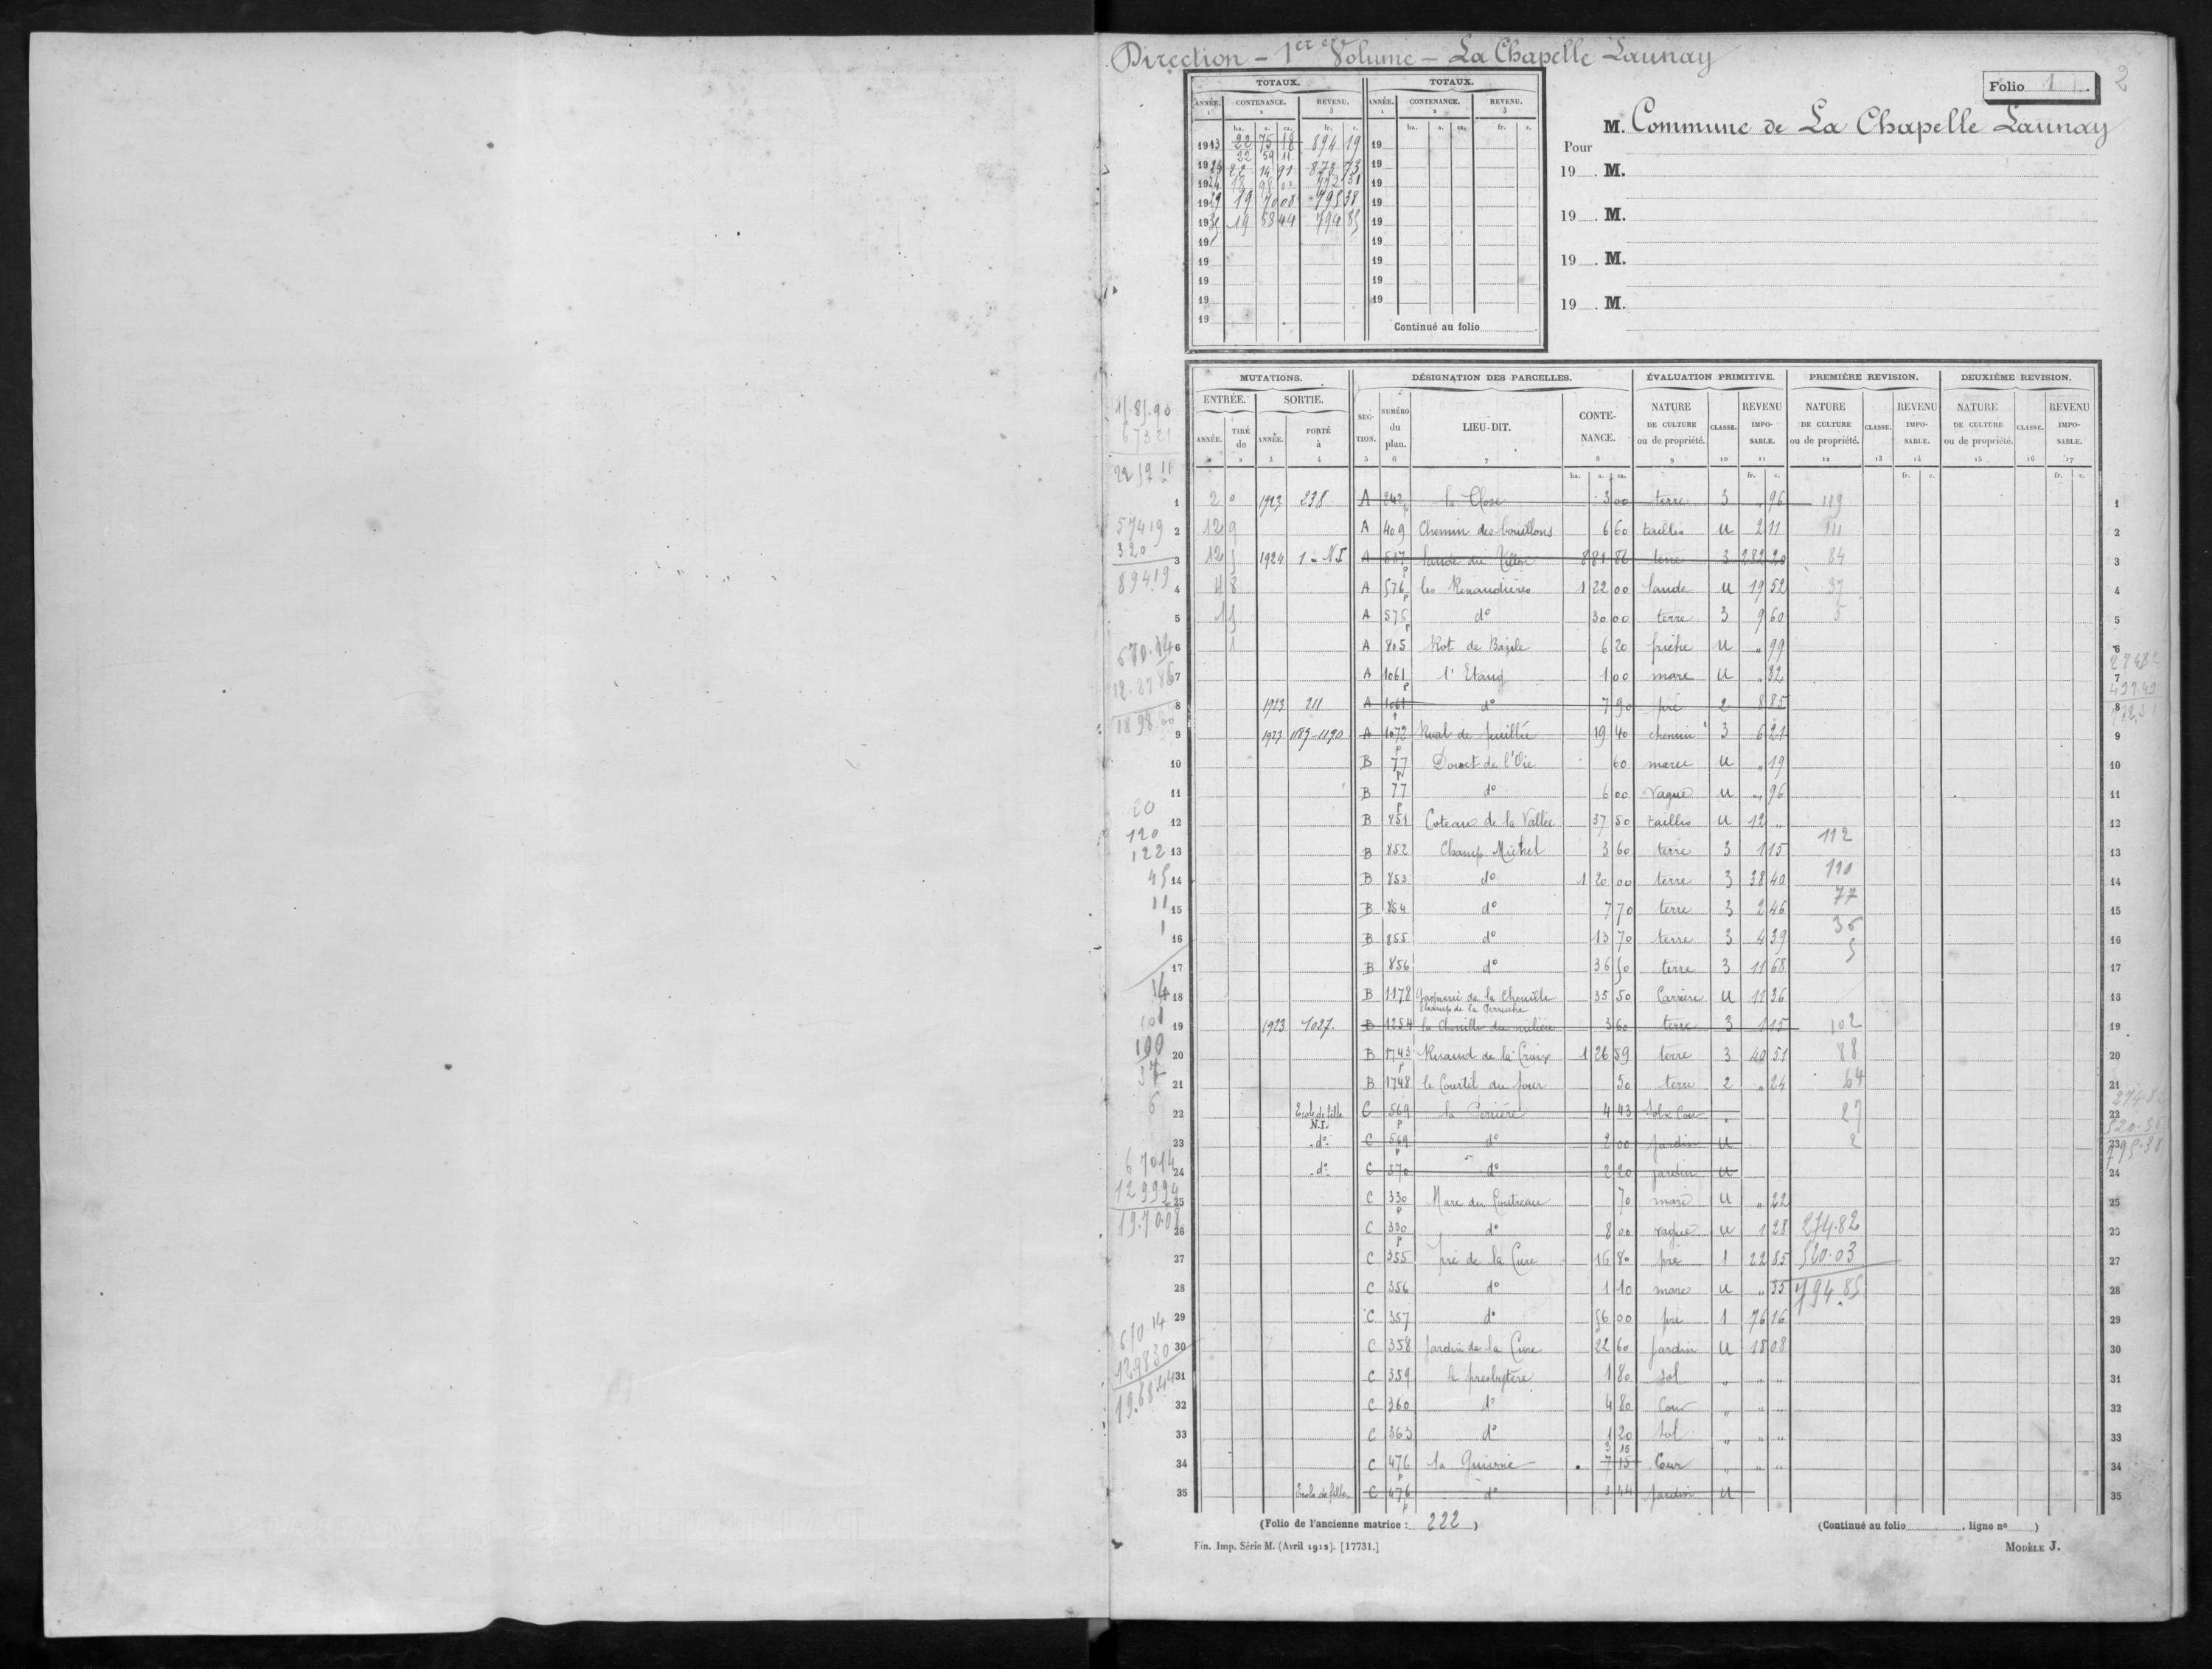 Direction - 1er Volume - La Chapelle Launay
Folio 1. 2
TOTAUX. TOTAUX.
ANNÉE. CONTENANCE. REVENU. ANNÉE. CONTENANCE. REVENU.
1 2 3 1 2 3
ha. a. ca. fr. c. ha. a. ca. fr. c.
1913 22 75 18 894 19 19
22 59 11
22 14 91 873 73 19
1924 18 98 00 772 31 19
19 19 70 08 795 38 19
1935 19 58 44 794 85 19
19 19
19 19
19 19
19 19
19 Continué au folio
M. Commune de La Chapelle Launay
Pour
19 . M.
19 . M.
19 . M.
19 . M.
MUTATIONS. DÉSIGNATION DES PARCELLES. ÉVALUATION PRIMITIVE. PREMIÈRE REVISION. DEUXIÈME REVISION.
ENTRÉE. SORTIE. SECTION. NUMÉRO du plan. LIEU-DIT. CONTENANCE. NATURE DE CULTURE ou de propriété. CLASSE. REVENU IMPOSABLE. NATURE DE CULTURE ou de propriété. CLASSE. REVENU IMPOSABLE. NATURE DE CULTURE ou de propriété. CLASSE. REVENU IMPOSABLE.
ANNÉE. TIRÉ de ANNÉE. PORTÉ à
2 3 4 5 6 7 8 9 10 11 12 13 14 15 16 17
ha. a. ca. fr. c. fr. c. fr. c.
1 2 0 1923 238 A 242 p la Close 3 00 terre 3 " 96 119 1
2 12 9 A 409 Chemin des bouillons 6 60 taillis U 2 11 111 2
3 12 5 1924 1 - N.I A 537 p lande du 8 81 86 terre 3 282 20 84 3
4 4 8 A 576 p les Renaudières 1 22 00 lande U 19 52 37 4
5 1 5 A 576 p do 30 00 terre 3 9 60 5 5
6 1 A 805 Rot de Bazile 6 20 friche U " 99 6
7 A 1061 p l'Etang 1 00 mare U " 32 7
8 1923 211 A 1061 do 7 90 pré 2 8 85 8
9 1923 1189-1190 A 1072 p 19 40 3 6 21 9
10 B 77 p Douet de l'Oie 60 mare U " 19 10
11 B 77 p do 6 00 vague U " 96 11
12 B 851 Coteau de la Vallée 37 50 taillis U 12 " 12
13 B 852 Champ Michel 3 60 terre 3 1 15 112 13
14 B 853 do 1 20 00 terre 3 38 40 110 14
15 B 854 do 7 70 terre 3 2 46 77 15
16 B 855 do 13 70 terre 3 4 39 36 16
17 B 856 do 36 50 terre 3 11 68 5 17
18 B 1178 de la Chenille 35 50 Carrière U 11 36 18
19 1923 1027 B 1254 la Chenille du milieu 3 60 terre 3 1 15 102 19
20 B 1743 p de la Croix 1 26 59 terre 3 40 51 88 20
21 B 1748 le Courtil du four 50 terre 2 " 24 64 21
22 Ecole de fille N.I. C 569 p la 4 43 Sol Cour " 27 22
23 do C 569 p do 2 00 jardin U 2 23
24 do C 570 do 2 20 jardin U 24
25 C 330 p Mare du 70 mare U " 22 25
26 C 330 p do 8 00 vague U 1 28 274.82 26
27 C 355 pré de la Cure 16 80 pré 1 22 85 520.03 27
28 C 356 do 1 10 mare U " 35 794.85 28
29 C 357 do 56 00 pré 1 76 16 29
30 C 358 Jardin de la Cure 22 60 jardin U 18 08 30
31 C 359 le presbytère 1 80 sol " " " 31
32 C 360 do 4 80 Cour " " " 32
33 C 363 do 1 20 sol " " " 33
3 15
34 C 476 p la 7 15 Cour " " " 34
35 Ecole de fille C 476 p do 3 44 jardin U 35
(Folio de l'ancienne matrice : 222 ) (Continué au folio , ligne no )
Fin. Imp. Série M. (Avril 1912). [17731.] MODÈLE J.
15.85.90
6 73 21
22 59 11
574 19
320
894 19
670.14
12.27 86
18 98 00
20
120
122
45
11
1
14
101
100
37
6
6 70 14
12 99 94
19.70.08
670 14
12.98 30
19.68.44
274.82
497.49
772.31
274.82
520.
795.38